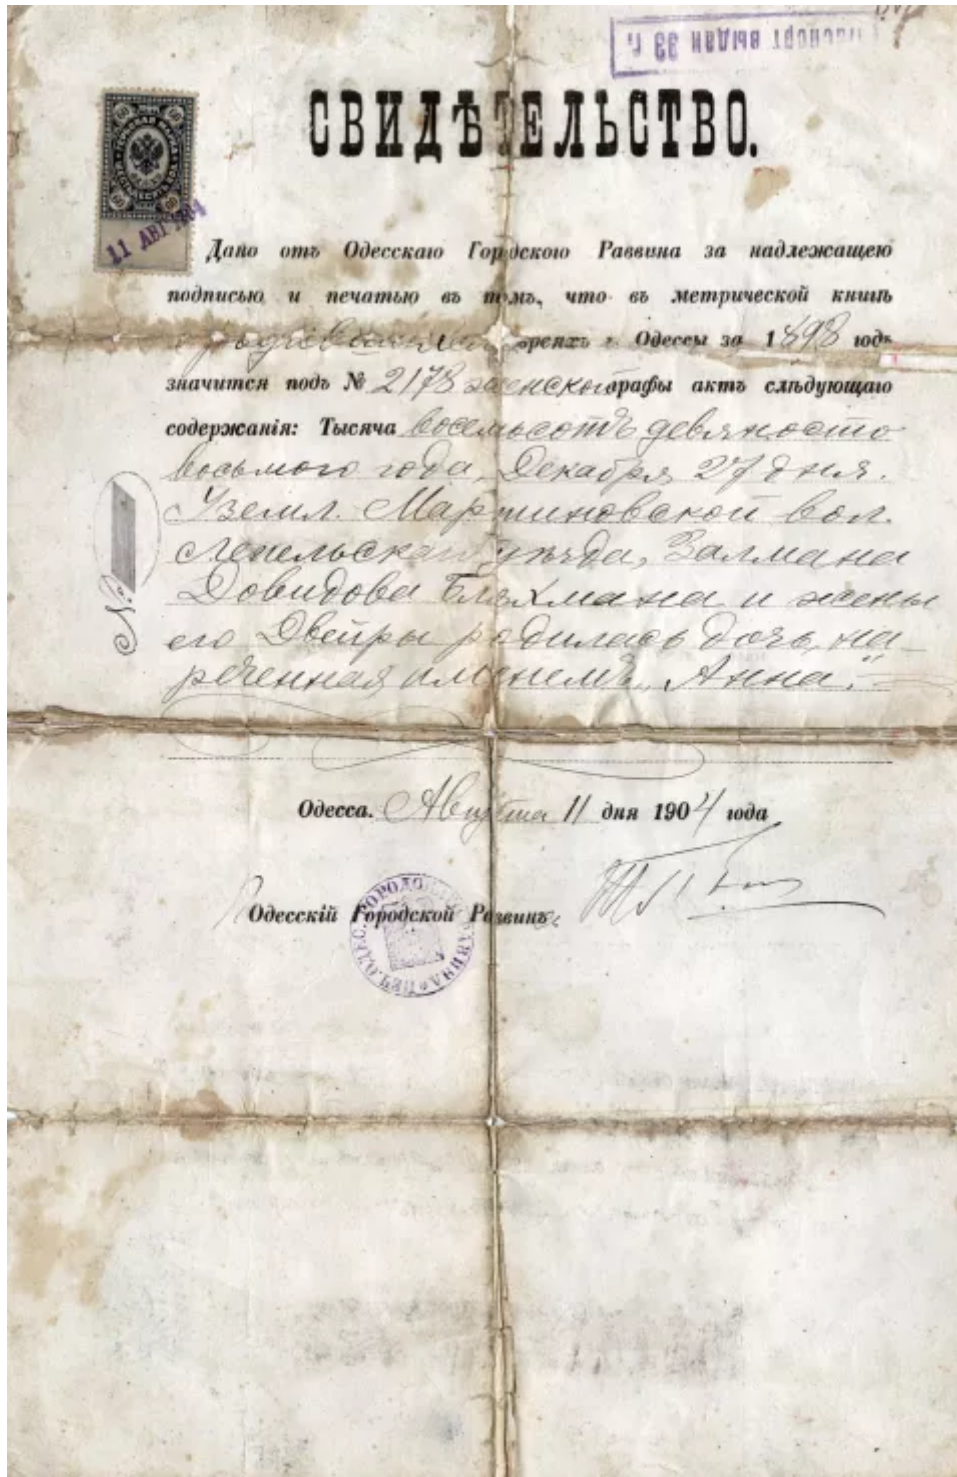 Паспорт выдан 33 г.
СВИДѢТЕЛЬСТВО.
11 АВГ 1904
Дано отъ Одесскаго Городского Раввина за надлежащею
подписью и печатью въ томъ, что въ метрической книгѣ
о родившихся евреяхъ г. Одессы за 1898 годъ
значится подъ № 2178 женской графы актъ слѣдующаго
содержанія: Тысяча восемьсотъ девяносто
восьмого года, Декабря 27 дня.
У земл. Мартиновской вол.
Лепельскаго уѣзда, Залмана
Довидова Бляхмана и жены
его Двейры родилась дочь, на-
реченная именемъ „Анна."
№
Одесса. Августа 11 дня 1904 года
Одесскій Городской Раввинъ
ПЕЧ. ОДЕС. ГОРОДОВ. РАВВИНА